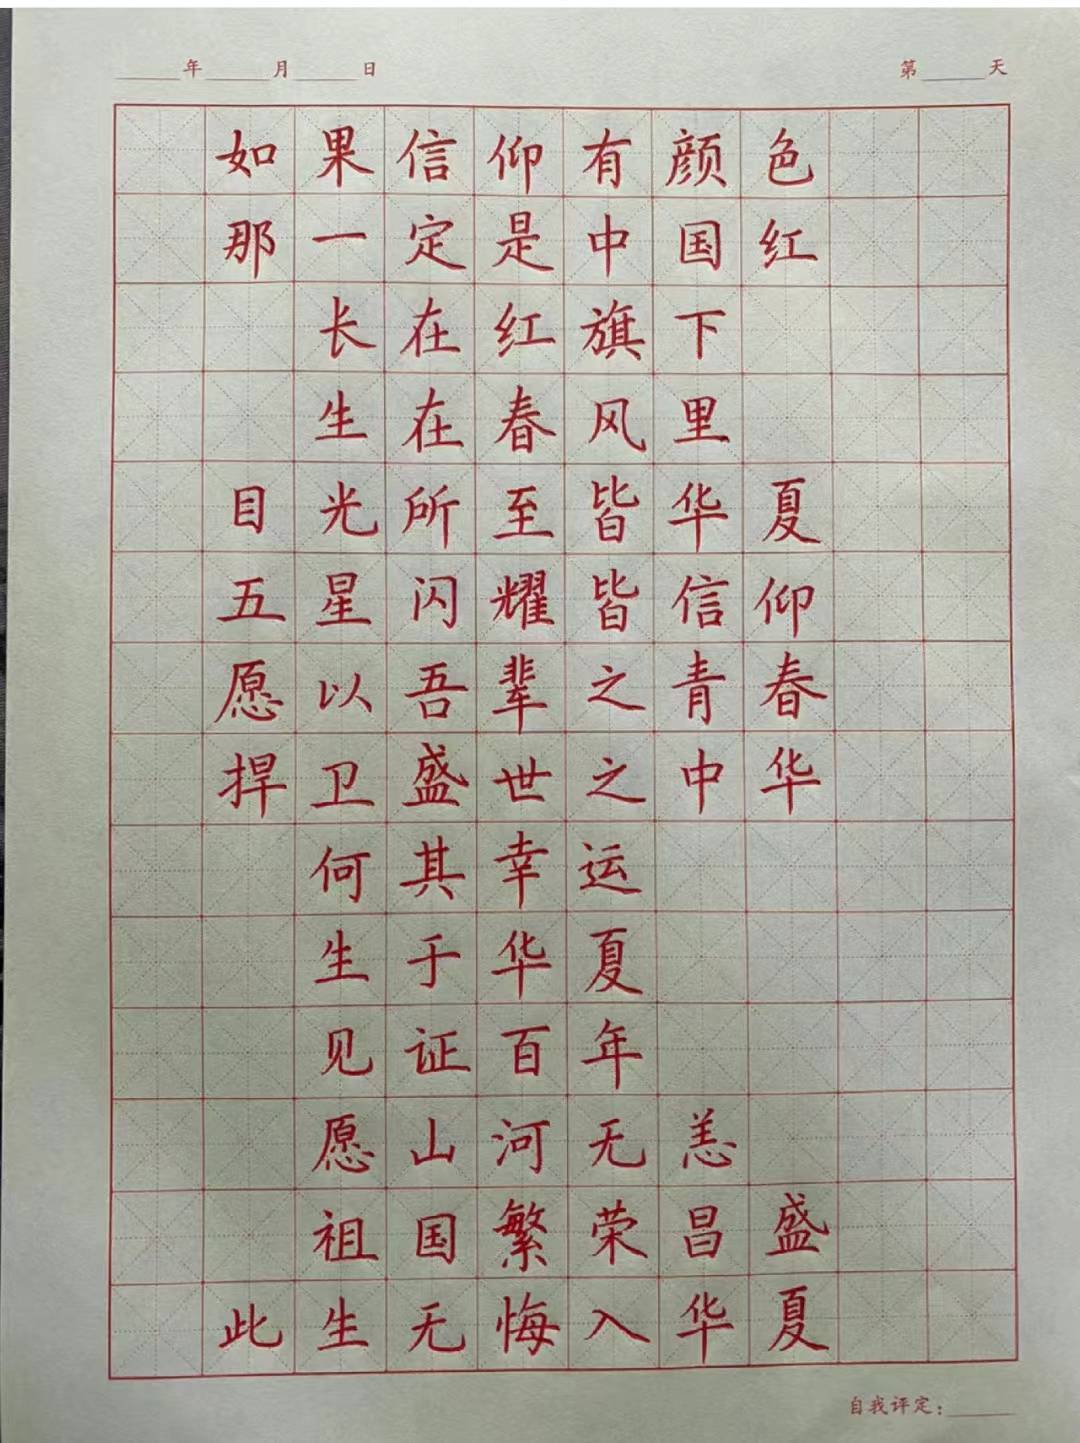 ____年____月____日 第____天
如果信仰有颜色
那一定是中国红
长在红旗下
生在春风里
目光所至皆华夏
五星闪耀皆信仰
愿以吾辈之青春
捍卫盛世之中华
何其幸运
生于华夏
见证百年
愿山河无恙
祖国繁荣昌盛
此生无悔入华夏
自我评定：____